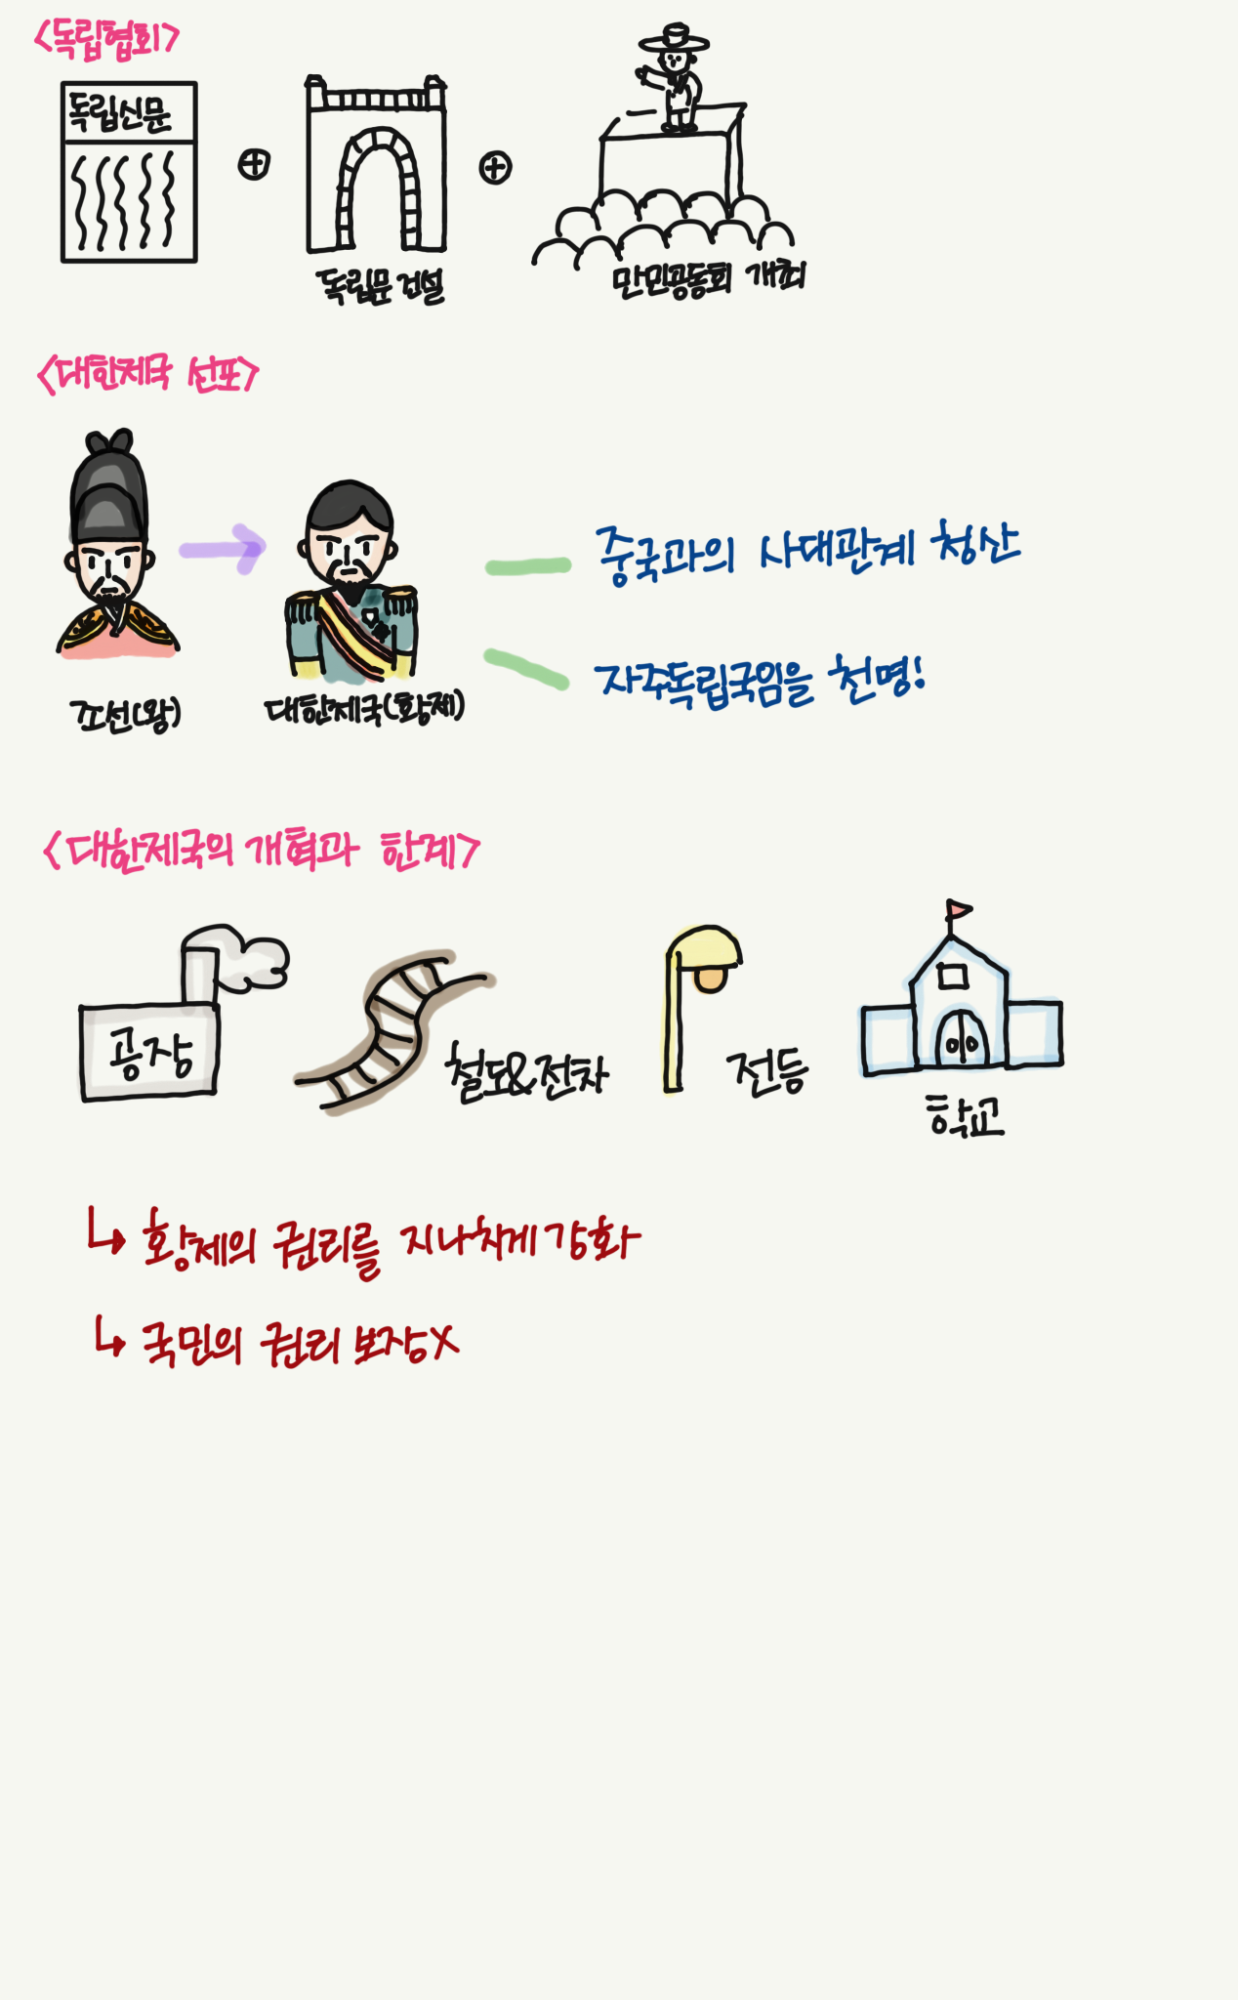 <독립협회>
독립신문
독립문 건설
만민공동회 개최
<대한제국 선포>
중국과의 사대관계 청산
자주독립국임을 천명!
조선(왕)
대한제국(황제)
<대한제국의 개혁과 한계>
공장
철도&전차
전등
학교
황제의 권리를 지나치게 강화
국민의 권리 보장X